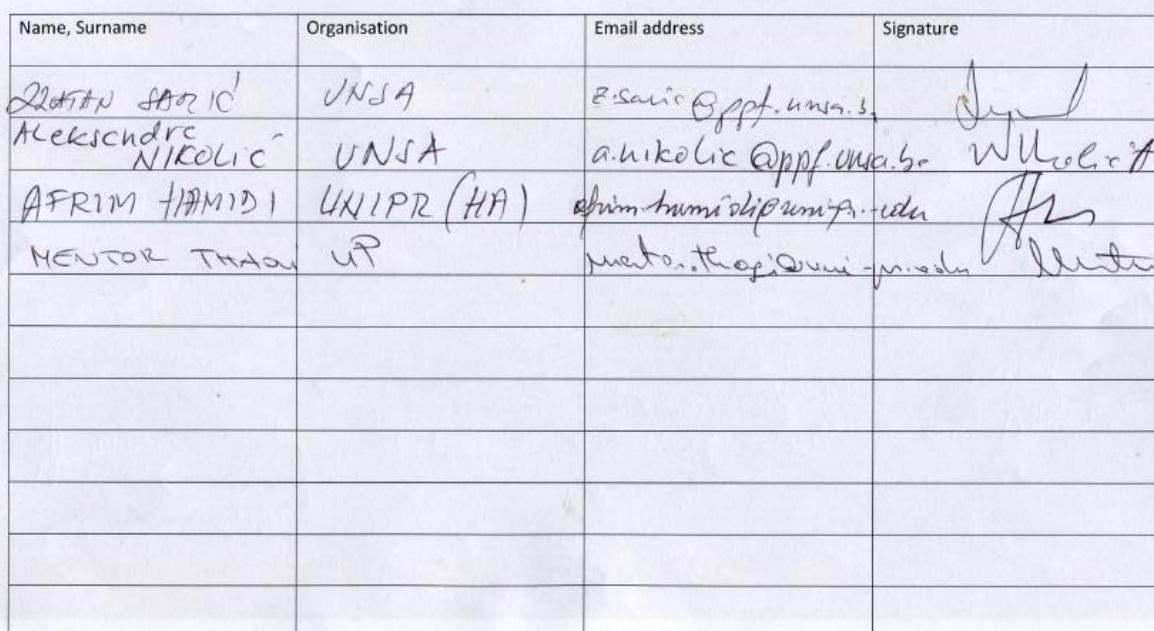 Name, Surname Organisation Email address Signature
ZLATAN SARIĆ UNSA z.saric@ppf.unsa.ba
Aleksandra
NIKOLIĆ UNSA a.nikolic@ppf.unsa.ba Nikolić A
AFRIM HAMIDI UNIPR (HA) afrim.hamidi@uni-pr.edu
MENTOR THAQI UP mentor.thaqi@uni-pr.edu